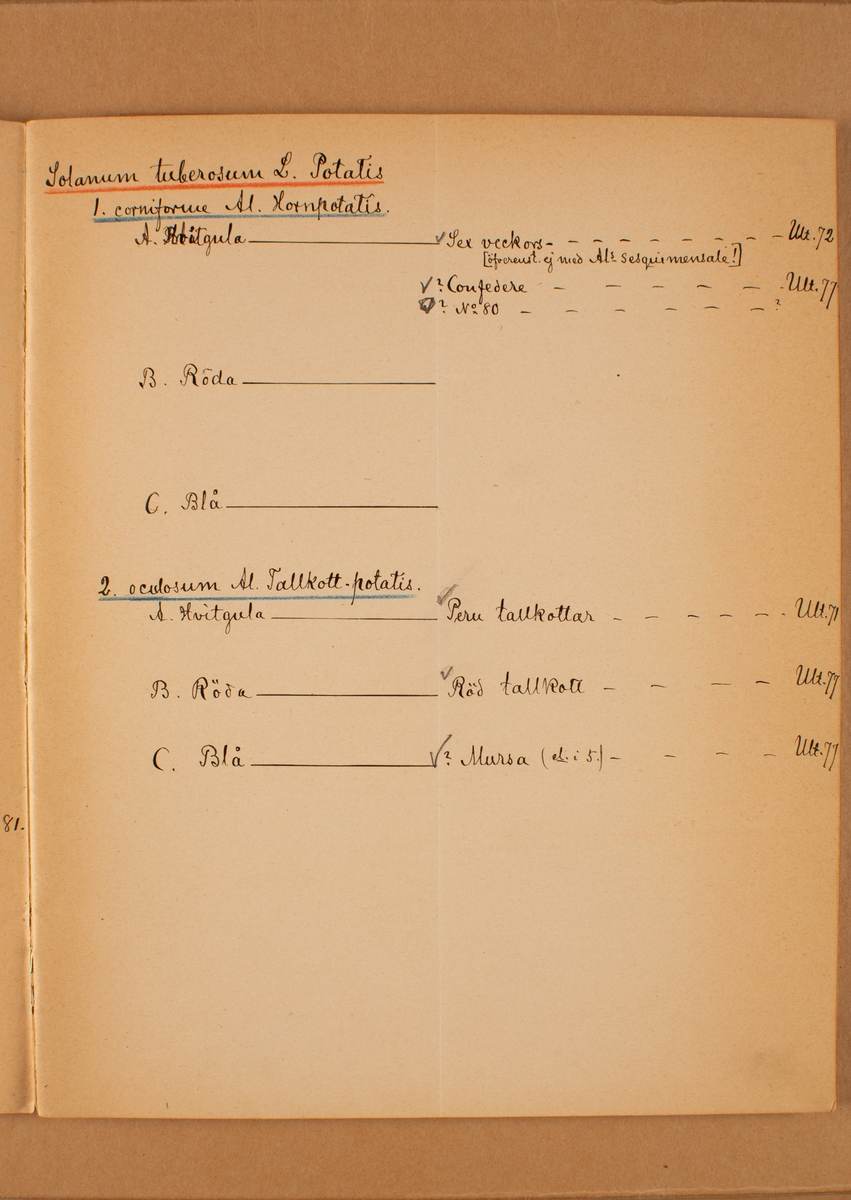 Solanum tuberosum L. Potatis
1. corniforme Al. Hornpotatis.
A. Hvitgula ✓ Sex veckors - - - - - - - Ult. 72
[öfverenst. ej med Al:s Sesquimensale!]
✓? Confedere - - - - - - Ult. 77
? No 80 - - - - - - ?
B. Röda
C. Blå
2. oculosum Al. Tallkott-potatis.
A. Hvitgula ✓ Peru tallkottar - - - - - Ult. 71
B. Röda ✓ Röd tallkott - - - - Ult. 77
C. Blå ✓? Mursa (el. i 5.) - - - - Ult. 77
81.